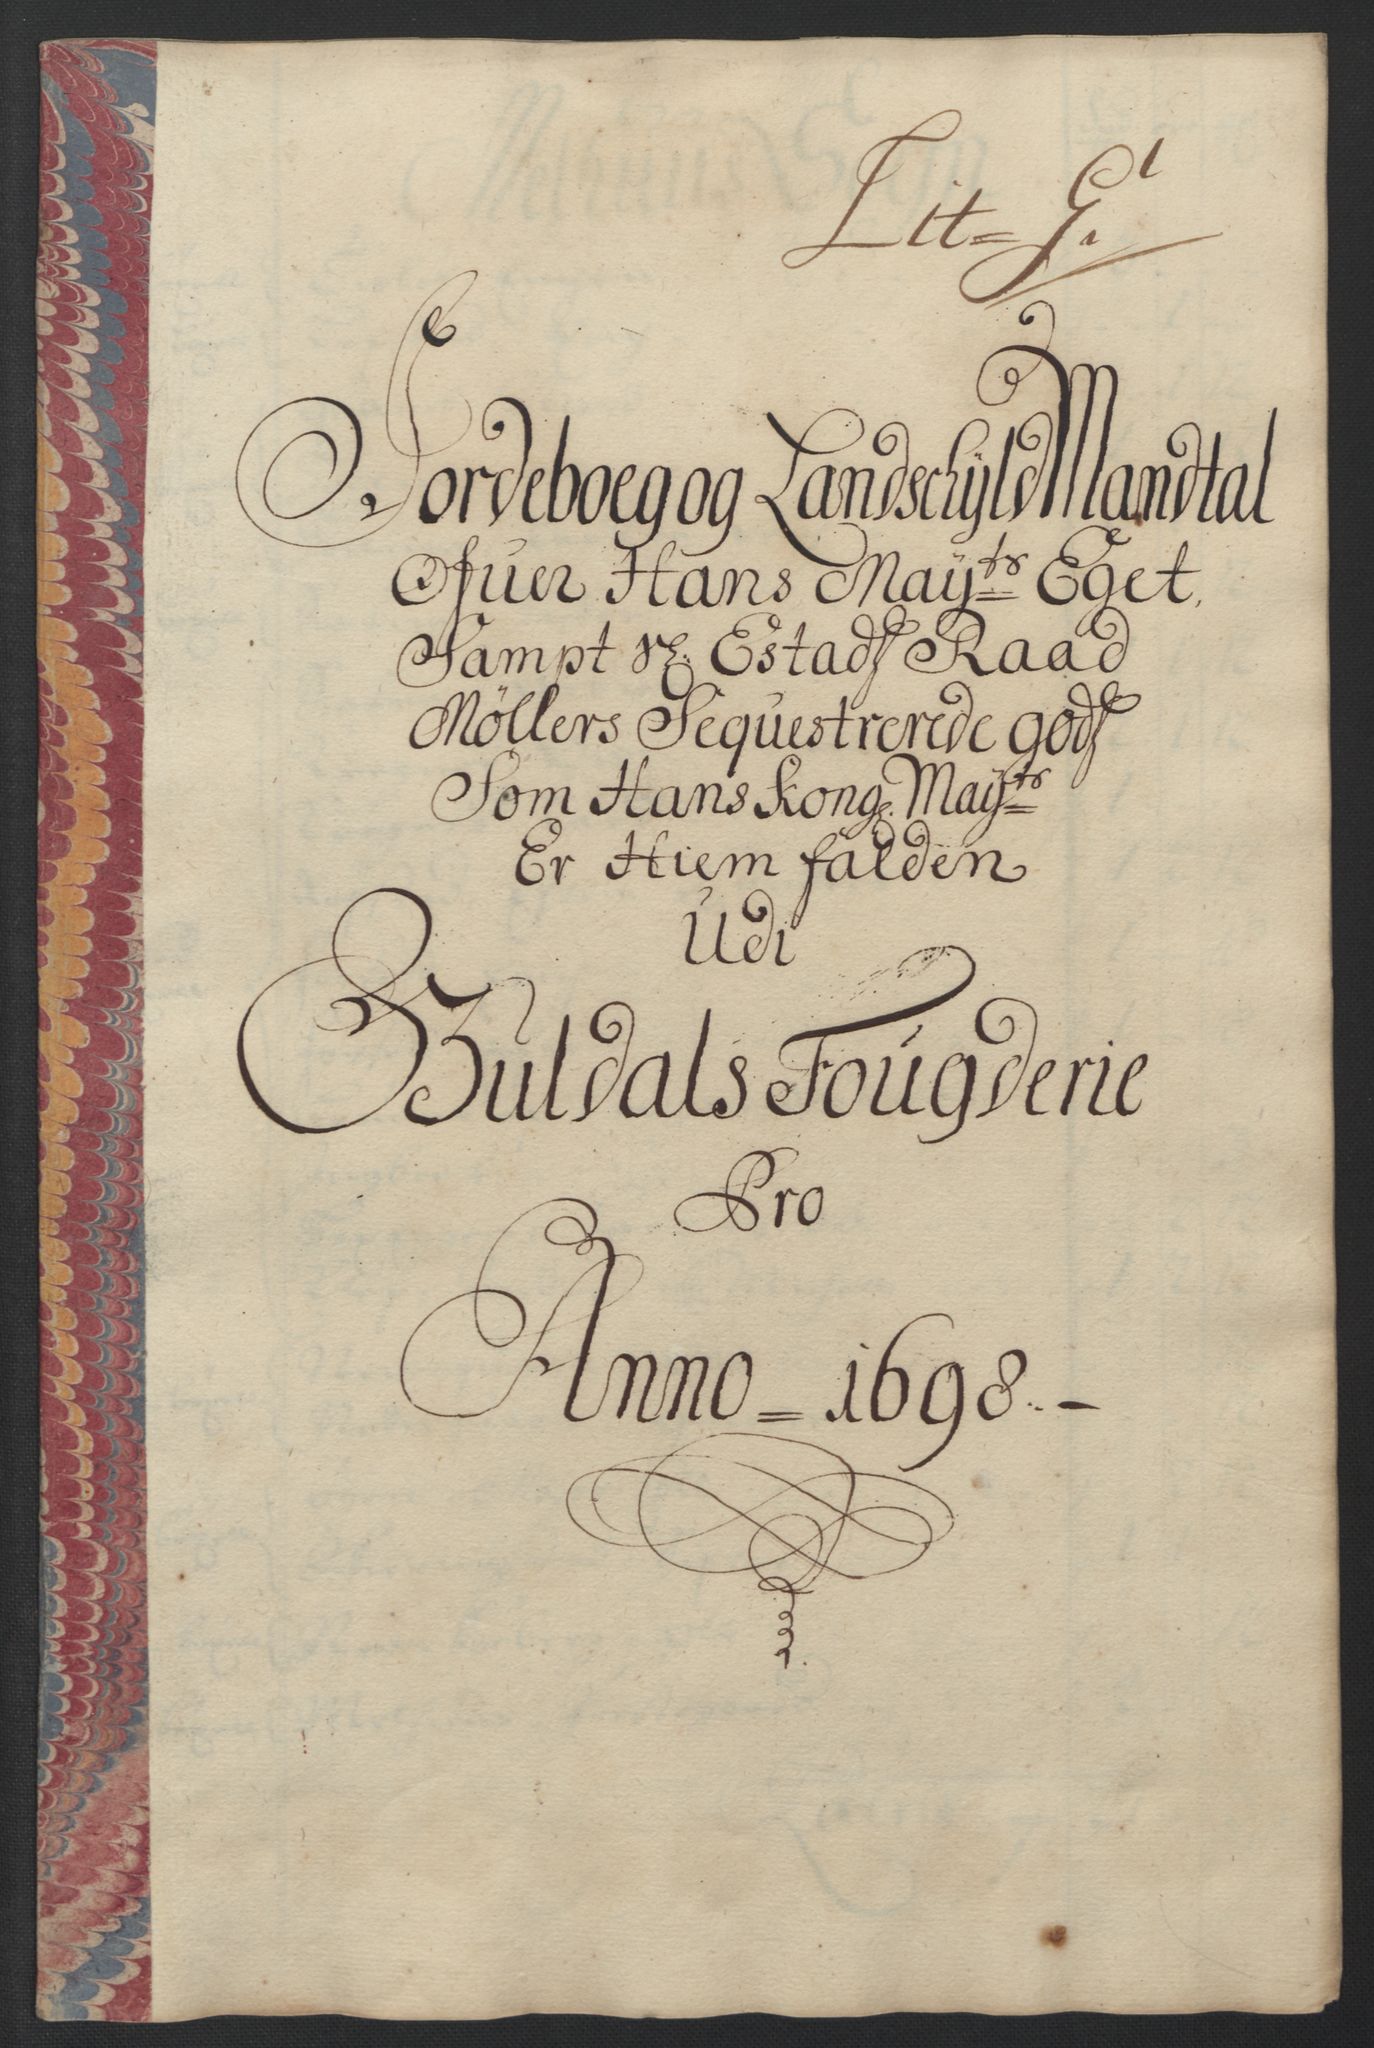 Lit= G. 1
Jordeboeg og Landschÿld Mandtal
Ofuer Hans Maÿ.ts Eget,
Sampt Estads Raad
Möllers Sequestrerede gods
Som Hans kong. Maÿ.ts
Er Hiem falden
Udi
Guldals Fougderie
Pro
Anno = 1698. –